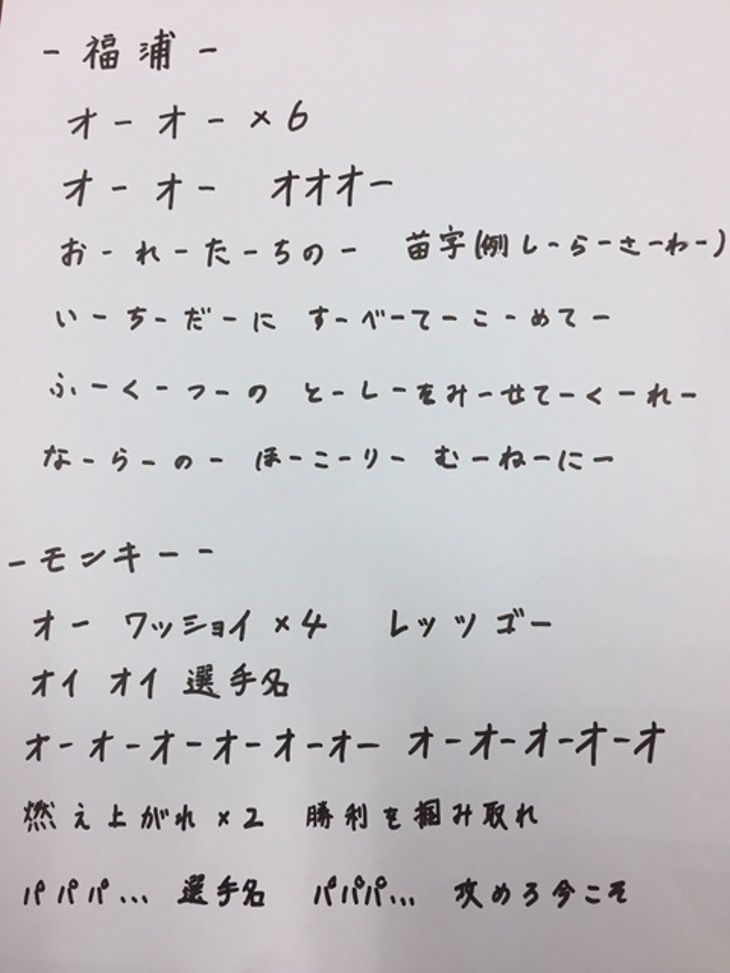 - 福浦 -
オーオー×6
オーオー オオオー
おーれーたーちのー 苗字(例しーらーさーわー)
いーちーだーに すーべーてーこーめてー
ふーくーつーの とーしーをみーせてーくーれー
なーらーのー ほーこーりー むーねーにー
- モンキー -
オー ワッショイ×4 レッツゴー
オイ オイ 選手名
オーオーオーオーオーオー オーオーオーオーオ
燃え上がれ×2 勝利を掴み取れ
パパパ... 選手名 パパパ... 攻めろ今こそ